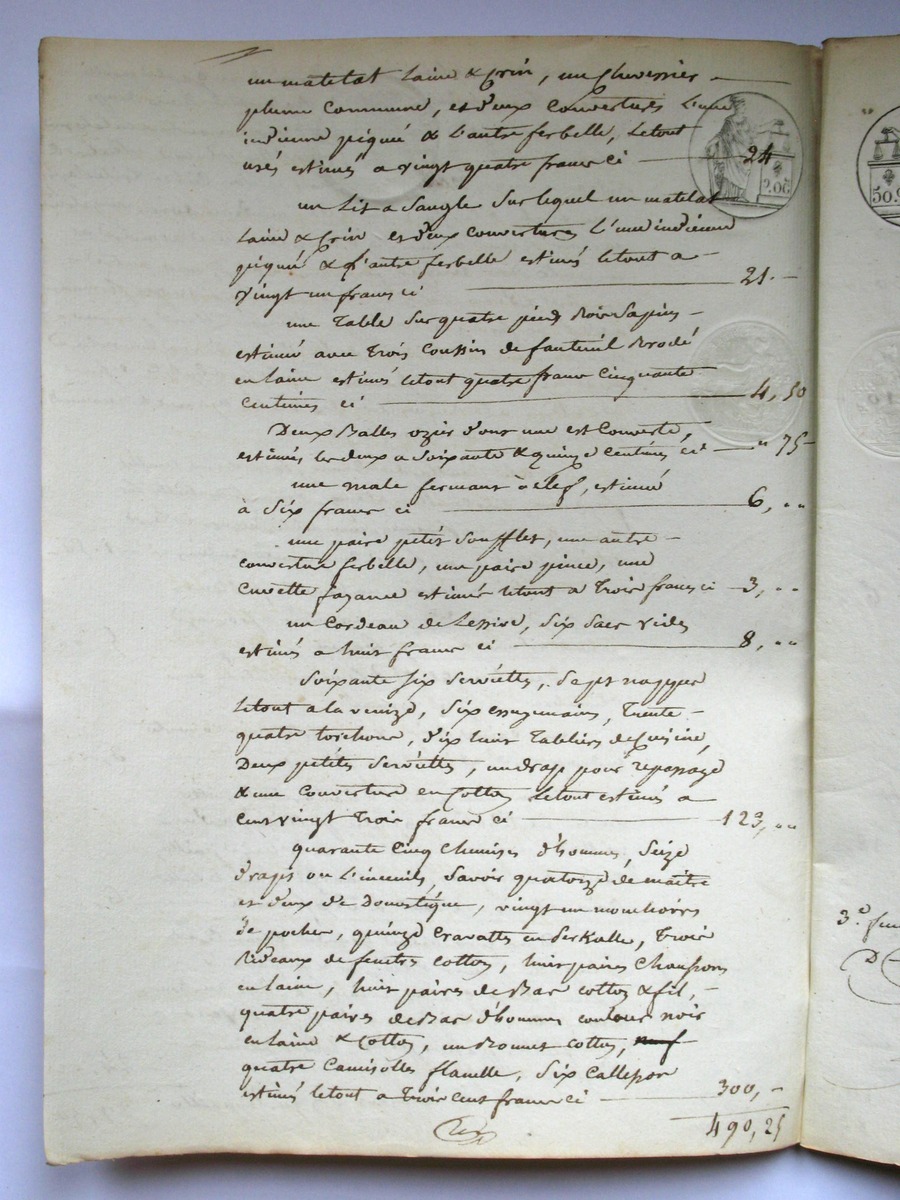 un matelat laine & Crin, un cheverrier
plume commune, et deux couvertures l'une
indienne péquée & l'autre ferbelle, le tout
usés estimés a vingt quatre francs ci 24
2.00
un Lit a Sangle sur lequel un matelat
laine & Crin et deux couvertures l'une indienne
péquée & l'autre ferbelle estimés le tout a
vingt un francs ci 21.
une Table sur quatre pieds Bois Sapin
estimé avec Trois Coussins de fauteuil Brodé
en laine estimés le tout quatre francs cinquante
centimes ci 4, 50
Deux Balles ozier d'ont une est couverte,
estimés les deux a soixante & quinze centimes ci " 75
une male fermant à clef, estimée
à Six francs ci 6, ..
une paire petits soufflet, une autre
couverture ferbelle, une paire pince, une
Cuvette fayance estimés le tout a Trois francs ci 3, ..
un Cordeau de Lessive, Six Sacs vides
estimés a huit francs ci 8, ..
Soixante six serviettes, sept nappes
le tout a la venize, Six essuyemains, Trente
quatre torchons, dix huit Tabliers de Cuisine,
Deux petites Serviettes, un drap pour repassage
& une couverture en Cotton le tout estimés a
Cent vingt Trois francs ci 123, ..
quarante Cinq Chemises d'hommes, Seize
draps ou Linceuils, Savoir quatorze de maître
et deux de Domestique, vingt un mouchoirs
de poches, quinze Cravattes en Perkalle, Trois
Rideaux de fenêtres cotton, huit paires Chaussons
en laine, huit paires de Bas cotton & fil,
quatre paires de Bas d'hommes couleur noir
en laine & Cotton, un Bonnet cotton, neuf
quatre Camisolles flanelle, Six Calleçon
estimés le tout a Trois Cent francs ci 300,
490, 25
50.
3.e
D